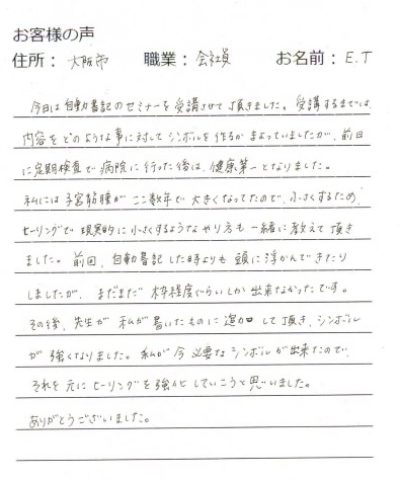 お客様の声
住所： 大阪市 職業： 会社員 お名前： E.T
今日は自動書記のセミナーを受講させて頂きました。受講するまでは、
内容をどのような事に対してシンボルを作るか迷っていましたが、前日
に定期検査で病院に行った後は、健康第一となりました。
私には子宮筋腫がここ数年で大きくなってたので、小さくするため、
ヒーリングで現実的に小さくするようなやり方も一緒に教えて頂き
ました。前回、自動書記した時よりも頭に浮かんできたり
しましたが、まだまだ枠程度ぐらいしか出来なかったです。
その後、先生が私が書いたものに追加して頂き、シンボル
が強くなりました。私が今必要なシンボルが出来たので、
それを元にヒーリングを強化していこうと思いました。
ありがとうございました。